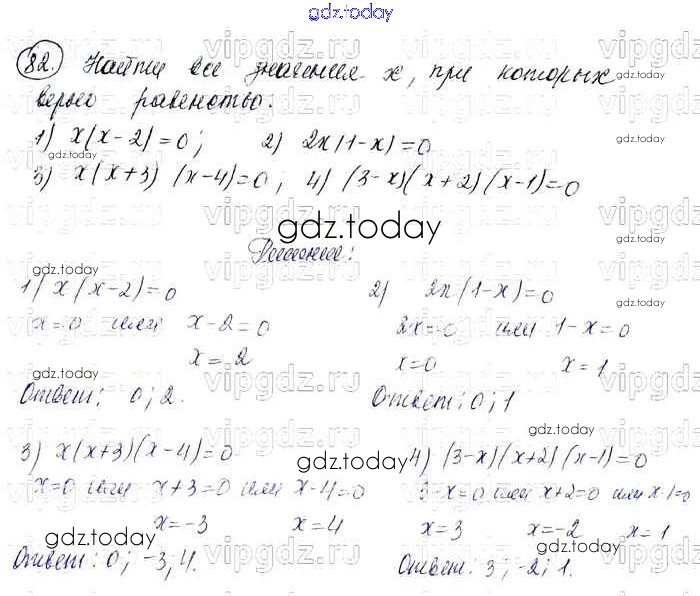 gdz.today
82. Найти все значения x, при которых
верно равенство:
1) x(x-2)=0; 2) 2x(1-x)=0
3) x(x+3)(x-4)=0; 4) (3-x)(x+2)(x-1)=0
gdz.today
Решение:
1) x(x-2)=0 2) 2x(1-x)=0
x=0 или x-2=0 2x=0 или 1-x=0
x=2 x=0 x=1
Ответ: 0; 2. Ответ: 0; 1
3) x(x+3)(x-4)=0 4) (3-x)(x+2)(x-1)=0
x=0 или x+3=0 или x-4=0 3-x=0 или x+2=0 или x-1=0
x=-3 x=4 x=3 x=-2 x=1
Ответ: 0; -3; 4. Ответ: 3; -2; 1.